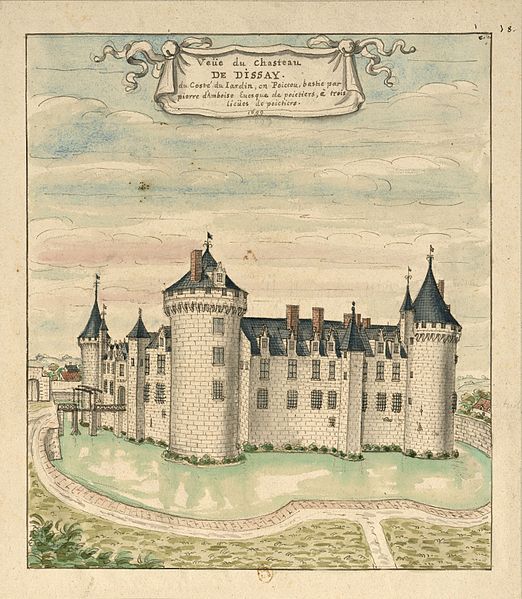 8.
Veüe du Chasteau
DE DISSAY.
du Costé du Iardin, en Poictou, bastie par
pierre d'Amboise Euesque de poictiers, à trois
lieües de poictiers.
1699